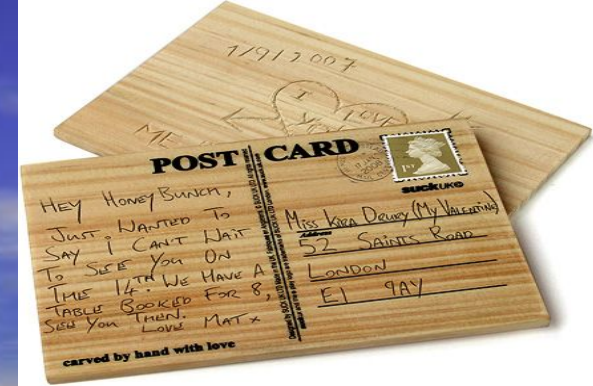 1/9/2007
I
LOVE
YOU
ME
POST CARD
1ST
SUCKUK
HEY HONEYBUNCH,
JUST WANTED TO
SAY I CAN'T WAIT
TO SEE YOU ON
THE 14TH WE HAVE A
TABLE BOOKED FOR 8,
SEE YOU THEN.
LOVE MAT x
Miss KIRA DRURY (MY VALENTINE)
Address
52 SAINTS ROAD
LONDON
E1 9AY
carved by hand with love